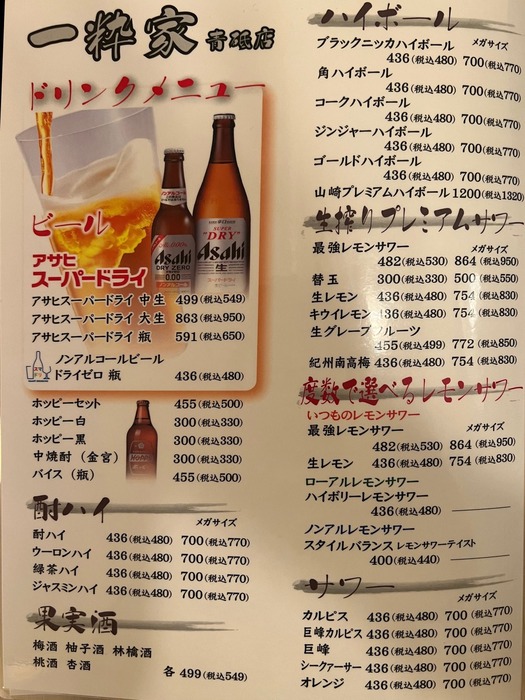 一粋家 青砥店
ドリンクメニュー
ビール
アサヒ
スーパードライ
Asahi
DRY ZERO
0.00
SUPER
"DRY"
Asahi
生
アサヒスーパードライ 中生 499(税込549)
アサヒスーパードライ 大生 863(税込950)
アサヒスーパードライ 瓶 591(税込650)
ノンアルコールビール
ドライゼロ 瓶 436(税込480)
ホッピーセット 455(税込500)
ホッピー白 300(税込330)
ホッピー黒 300(税込330)
中焼酎(金宮) 300(税込330)
バイス(瓶) 455(税込500)
酎ハイ
メガサイズ
酎ハイ 436(税込480) 700(税込770)
ウーロンハイ 436(税込480) 700(税込770)
緑茶ハイ 436(税込480) 700(税込770)
ジャスミンハイ 436(税込480) 700(税込770)
果実酒
梅酒 柚子酒 林檎酒
桃酒 杏酒
各 499(税込549)
ハイボール
ブラックニッカハイボール メガサイズ
436(税込480) 700(税込770)
角ハイボール
436(税込480) 700(税込770)
コークハイボール
436(税込480) 700(税込770)
ジンジャーハイボール
436(税込480) 700(税込770)
ゴールドハイボール
436(税込480) 700(税込770)
山崎プレミアムハイボール 1200(税込1320)
生搾りプレミアムサワー
最強レモンサワー メガサイズ
482(税込530) 864(税込950)
替玉 300(税込330) 500(税込550)
生レモン 436(税込480) 754(税込830)
キウイレモン 436(税込480) 754(税込830)
生グレープフルーツ
455(税込499) 772(税込850)
紀州南高梅 436(税込480) 754(税込830)
度数で選べるレモンサワー
いつものレモンサワー
最強レモンサワー メガサイズ
482(税込530) 864(税込950)
生レモン 436(税込480) 754(税込830)
ローアルレモンサワー
ハイボリーレモンサワー
436(税込480)
ノンアルレモンサワー
スタイルバランス レモンサワーテイスト
400(税込440)
サワー
メガサイズ
カルピス 436(税込480) 700(税込770)
巨峰カルピス 436(税込480) 700(税込770)
巨峰 436(税込480) 700(税込770)
シークァーサー 436(税込480) 700(税込770)
オレンジ 436(税込480) 700(税込770)